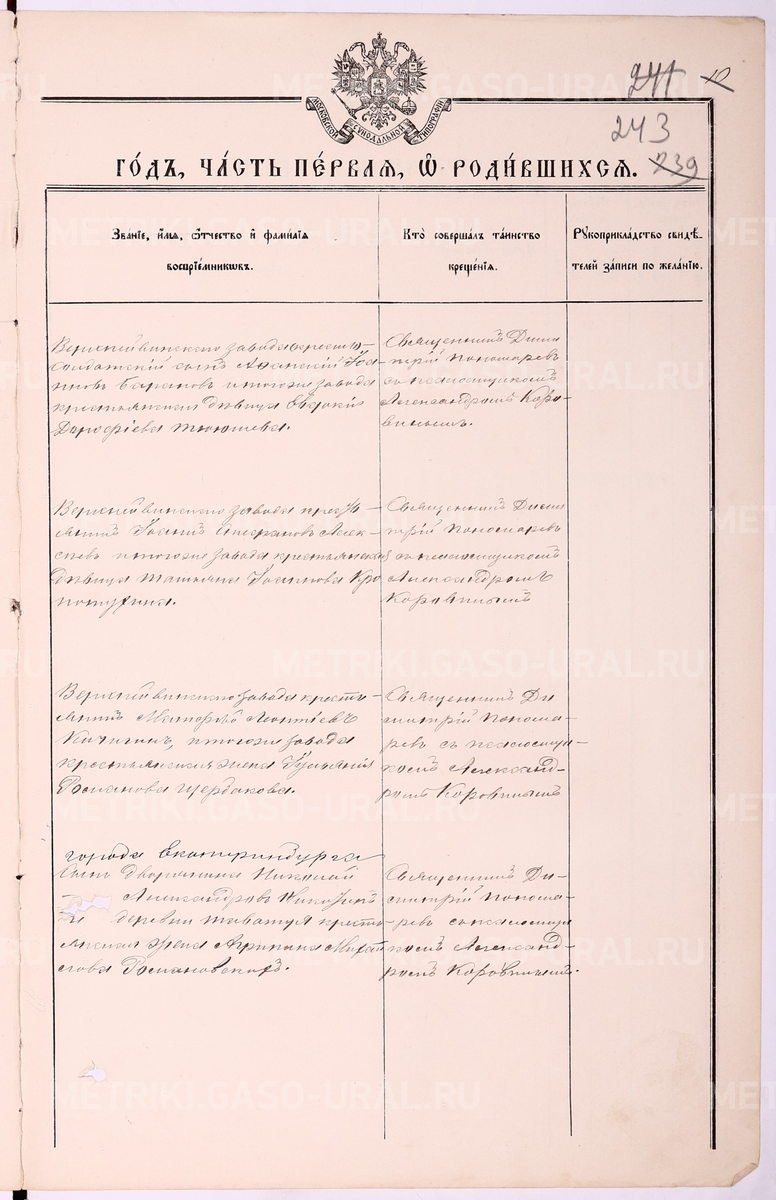 241
243
239
МОСКОВСКОЙ СѴНОДАЛЬНОЙ ТИПОГРАФІИ
ГО́ДЪ, ЧА́СТЬ ПЕ́РВАЯ, Ѡ РОДИ́ВШИХСЯ.
Зва́нїе, и҆́мѧ, ѻ҆́тчество и҆ фами́лїѧ
воспрїе́мникѡвъ.
Кто̀ соверша́лъ та́инство
креще́нїѧ.
Рꙋкоприкла́дство свидѣ́-
телей за́писи по жела́нїю.
Верхнейвинскаго завода
солдатскій сынъ Афанасій Іоан-
новъ Барановъ и тогоже завода
крестьянская дѣвица Евдокія
Дорофіева
Священникъ Дими
трій Пономаревъ
съ псаломщикомъ
Александромъ Коро-
винымъ.
Верхнейвинскаго завода крестья-
нинъ Іоаннъ Алек-
сѣевъ и тогоже завода крестьянская
дѣвица Татіана Іоаннова Кро
потухина.
Священникъ Дими
трій Пономаревъ
съ псаломщикомъ
Александромъ
Коровинымъ
Верхнейвинскаго завода кресть-
янинъ Леонтіевъ
Качигинъ, и тогоже завода
крестьянская жена Іуліанія
Романова Щербакова.
Священникъ Ди
митрій Понома-
ревъ съ псаломщи
комъ Александ-
ромъ Коровинымъ
города Екатеринбурга
сынъ дворянина Николай
Александровъ
деревни Таватуя кресть-
янская жена Агрипина Михай
лова Романовскихъ.
Священникъ Ди-
митрій Понома-
ревъ съ псаломщи
комъ Александ-
ромъ Коровинымъ.
METRIKI.GASO-URAL.RU